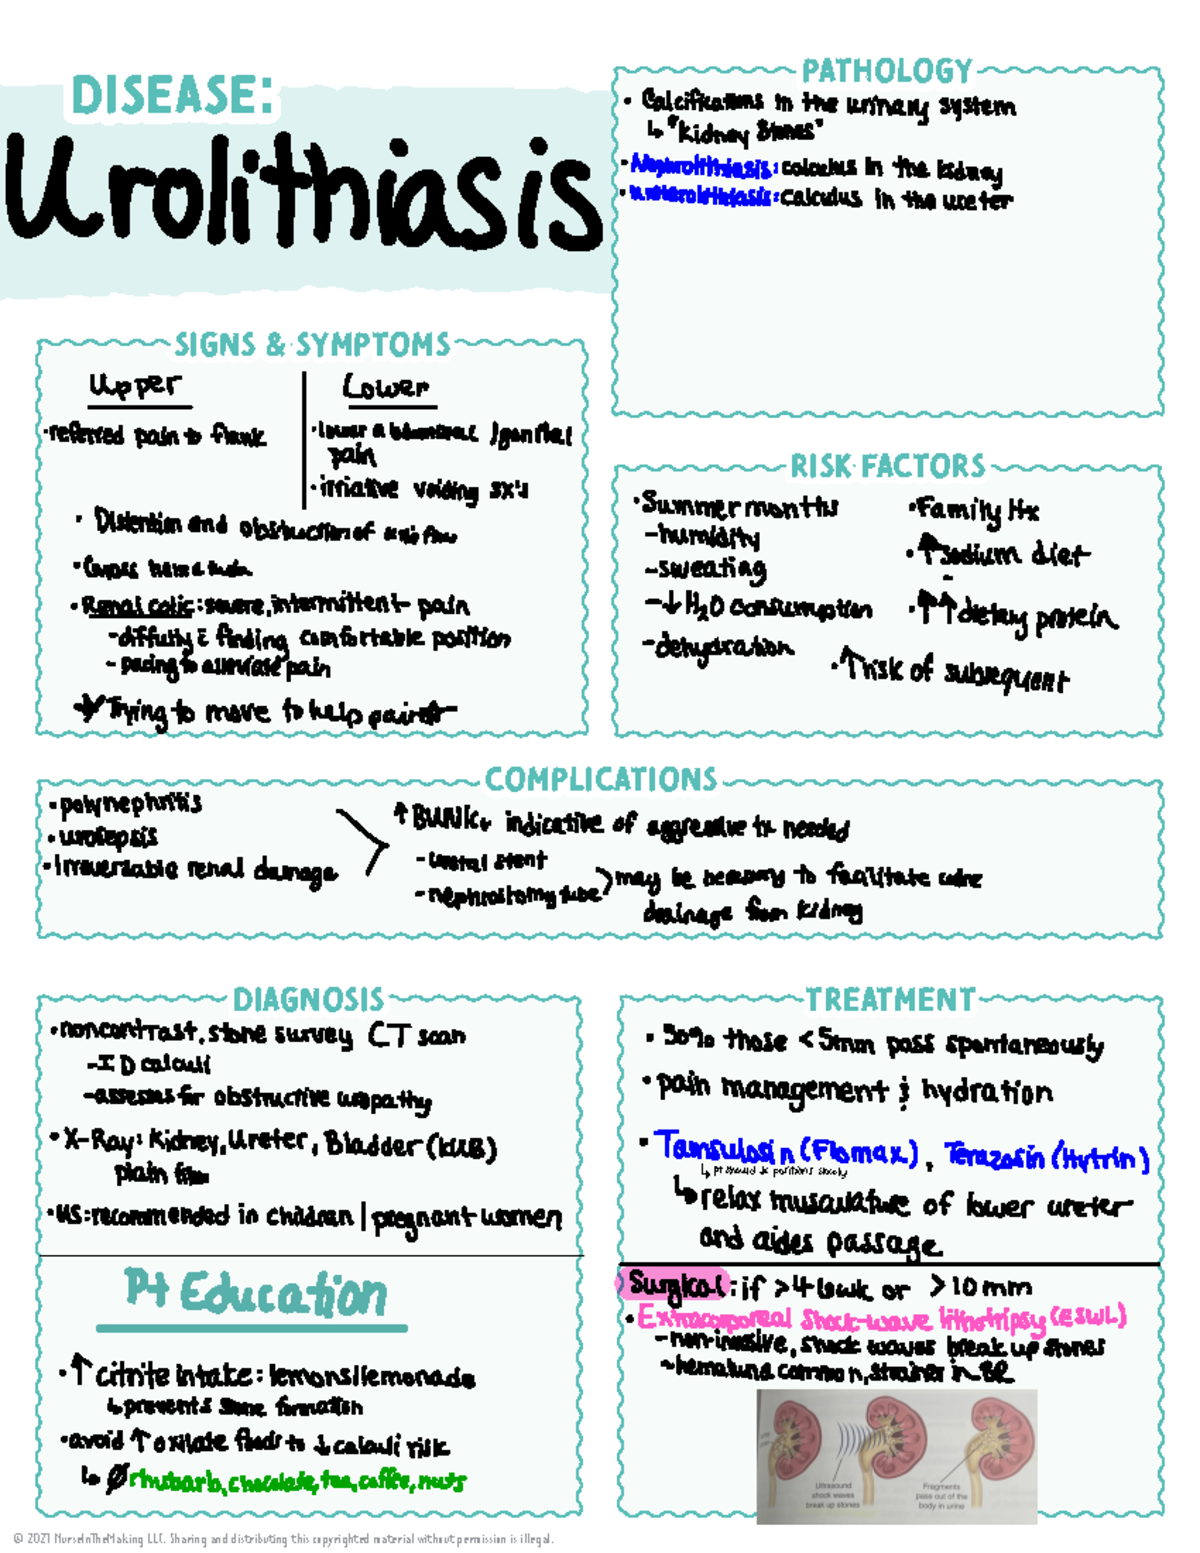 DISEASE:
Urolithiasis
PATHOLOGY
• Calcifications in the urinary system
↳ "kidney stones"
• Nephrolithiasis: calculus in the kidney
• ureterolithiasis: calculus in the ureter
SIGNS & SYMPTOMS
Upper
• referred pain to flank
Lower
• lower abdominal / genital
pain
• irritative voiding sx's
• Distention and obstruction of
• Causes hematuria
• Renal colic: severe, intermittent pain
- difficulty c̄ finding comfortable position
- pacing to alleviate pain
Trying to move to help pain
RISK FACTORS
• Summer months
- humidity
- sweating
- ↓ H2O consumption
- dehydration
• Family Hx
• ↑ sodium diet
• ↑↑ dietary protein
• ↑ risk of subsequent
COMPLICATIONS
• polynephritis
• urosepsis
• irreversable renal damage
↑ BUN/Cr indicative of aggressive tx needed
- ureteral stent
- nephrostomy tube
may be necessary to facilitate urine
drainage from kidney
DIAGNOSIS
• noncontrast, stone survey CT scan
- ID calculi
- assesses for obstructive uropathy
• X-Ray: Kidney, Ureter, Bladder (KUB)
plain film
• US: recommended in children | pregnant women
Pt Education
• ↑ citrite intake: lemons/lemonade
↳ prevents stone formation
• avoid ↑ oxilate foods to ↓ calculi risk
↳ Ø rhubarb, chocolate, tea, coffee, nuts
TREATMENT
• 50% those < 5mm pass spontaneously
• pain management & hydration
• Tamsulosin (Flomax), Terazosin (Hytrin)
↳ pt should Δ positions slowly
↳ relax musculature of lower ureter
and aides passage
Surgical: if > 4 week or > 10 mm
• Extracorporeal shock-wave lithotripsy (ESWL)
- non-invasive, shock waves break up stones
- hematuria common, strainer in BR
Ultrasound
shock waves
break up stones
Fragments
pass out of the
body in urine
© 2021 NurseInTheMaking LLC. Sharing and distributing this copyrighted material without permission is illegal.